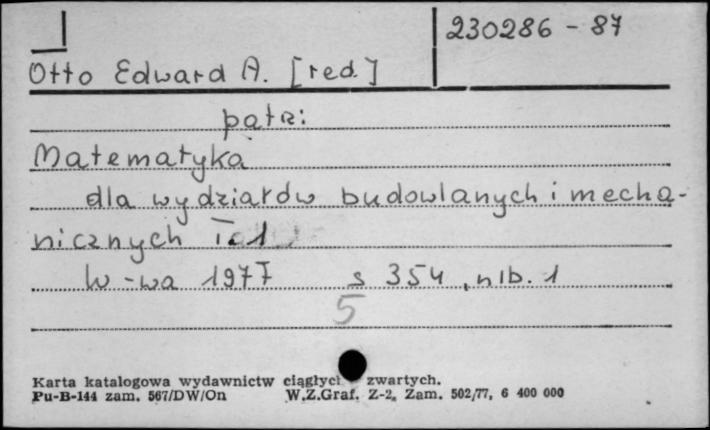 230286 - 87
Otto Edward A. [red.]
patrz:
Matematyka
dla wydziałów budowlanych i mecha-
nicznych T. 1
W-wa 1977 s 354, nlb. 1
5
Karta katalogowa wydawnictw ciągłyc zwartych.
Pu-B-144 zam. 567/DW/On W.Z.Graf. Z-2, Zam. 502/77, 6 400 000